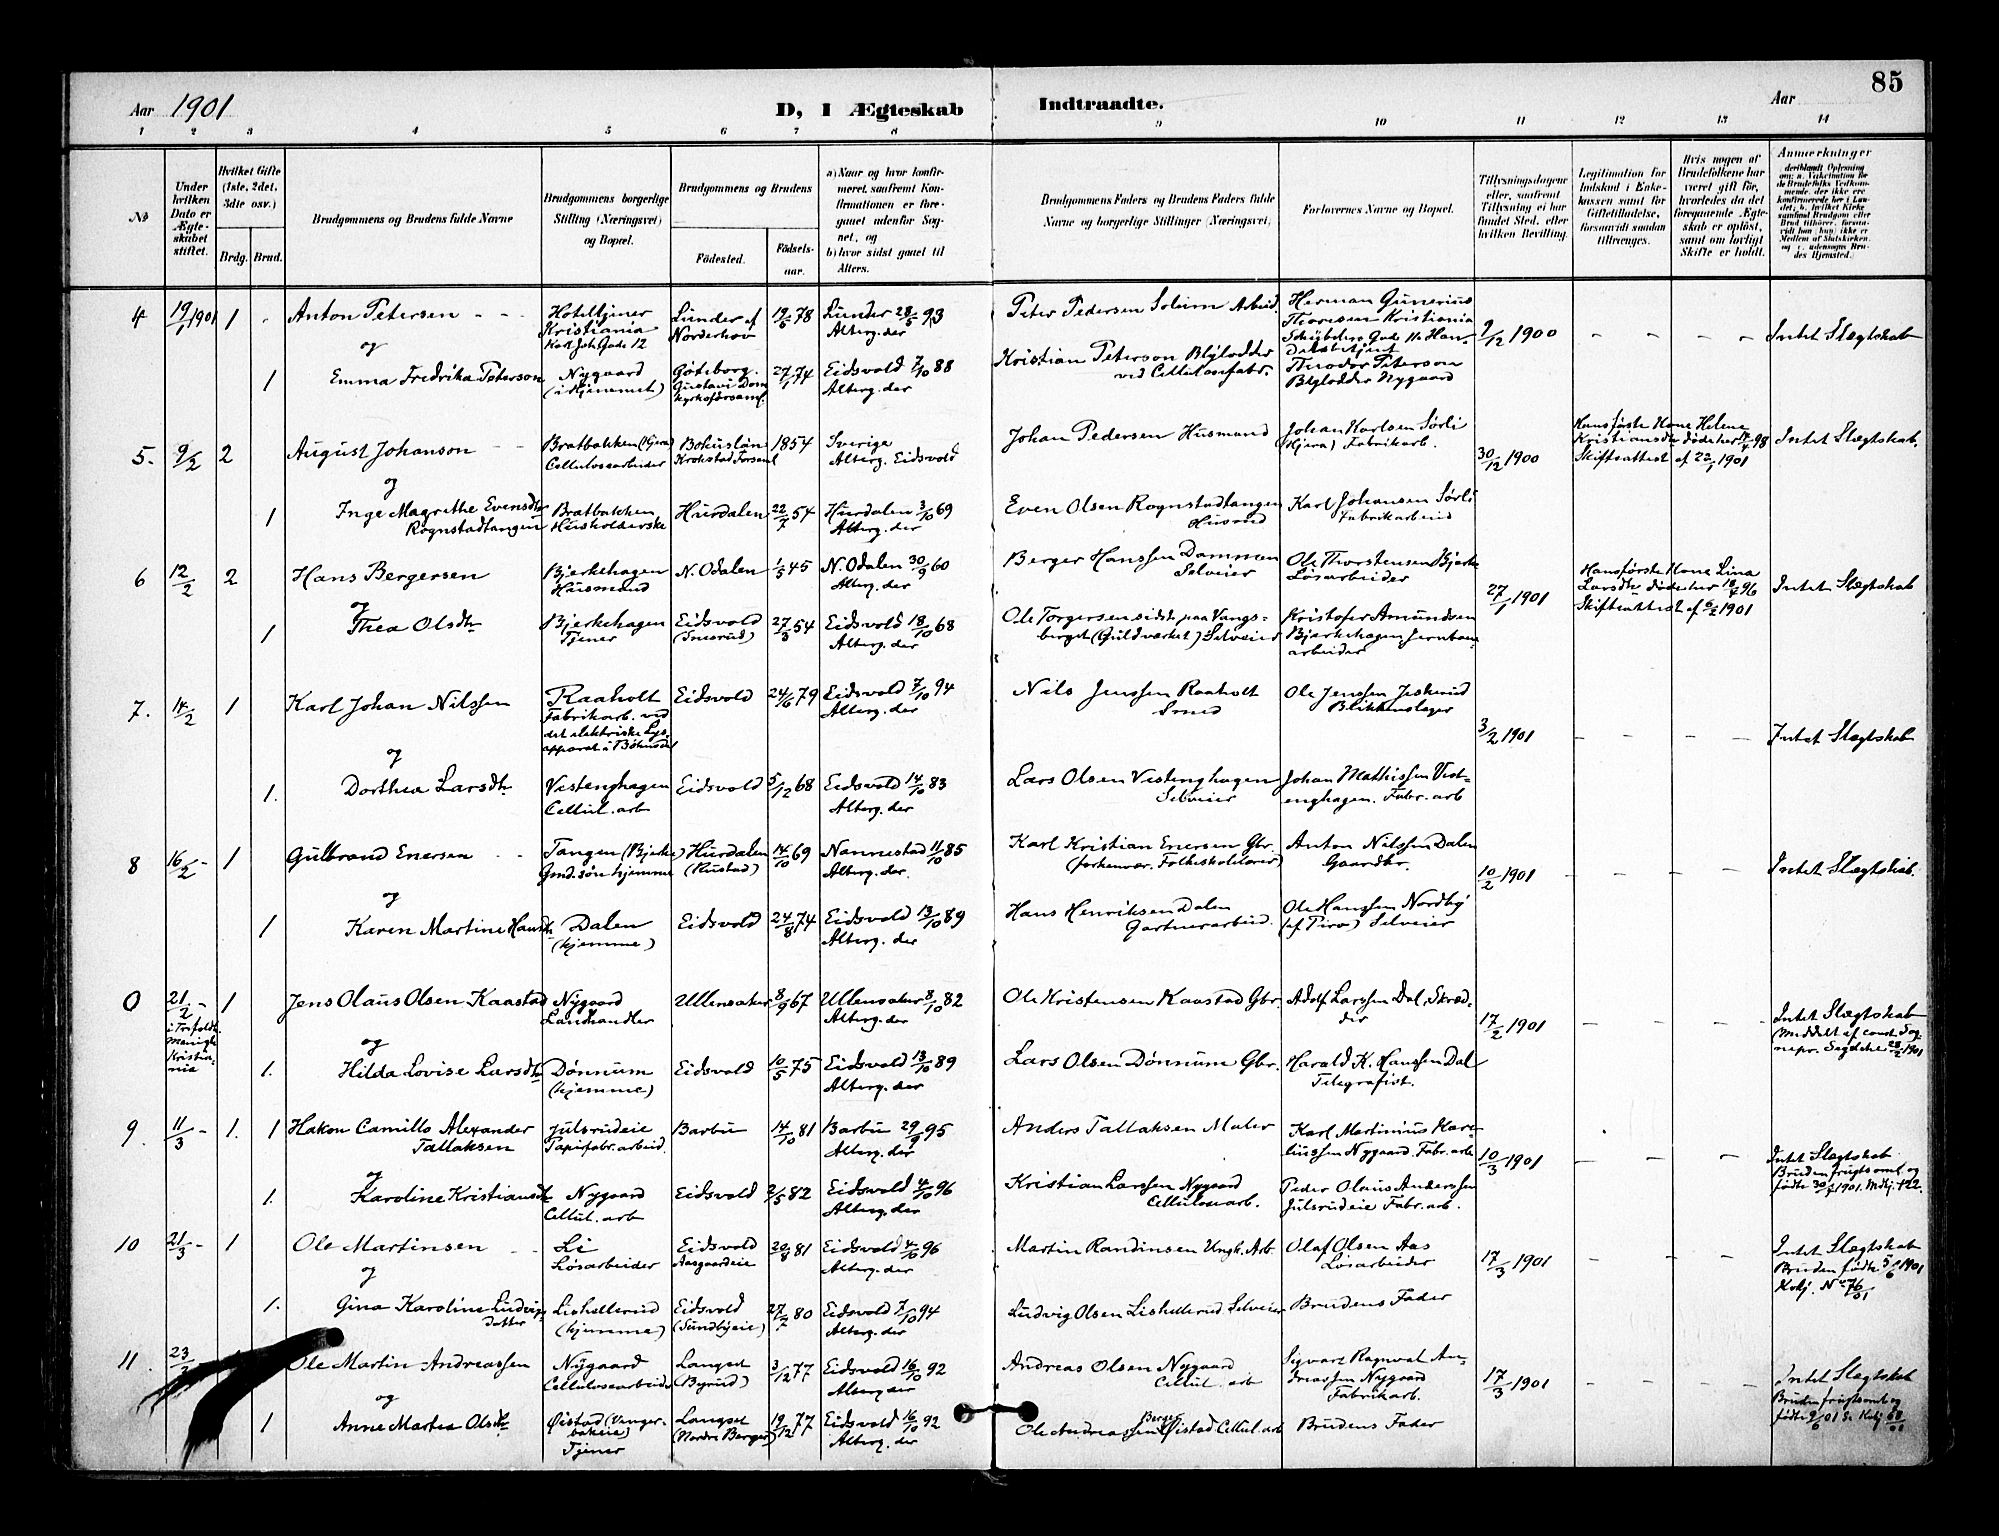 85
Aar 1901 D, 1 Ægteskab Indtraadte. Aar
1 2 3 4 5 6 7 8 9 10 11 12 13 14
No
Under hvilken Dato er Ægteskabet stiftet.
Hvilket Gifte (1ste, 2det, 3die osv.)
Brdg. Brud.
Brudgommens og Brudens fulde Navne
Brudgommens borgerlige Stilling (Næringsvei) og Bopæl.
Brudgommens og Brudens
Fødested.
Fødselsaar.
a) Naar og hvor konfirmeret, saafremt Konfirmationen er foregaaet udenfor Sognet, og
b) hvor sidst gaaet til Alters.
Brudgommens Faders og Brudens Faders fulde Navne og borgerlige Stillinger (Næringsvei).
Forlovernes Navne og Bopæl.
Tillysningsdagene eller, saafremt Tillysning ei har fundet Sted, efter hvilken Bevilling.
Legitimation for Indskud i Enkekassen samt for Giftetilladelse, forsaavidt saadan tiltrænges.
Hvis nogen af Brudefolkene har været gift før, hvorledes da det foregaaende Ægteskab er opløst, samt om lovligt Skifte er holdt.
Anmerkninger
4 19/1 1901 1 Anton Petersen
Hoteltjener Kristiania Karl Joh. Gade 12
Lunder af Norderhov 19/5 78
Lunder 28/5 93 Alterg. der
Peter Pedersen Solum Arbeid.
Herman Gunerius Thoresen Kristiania
9/12 1900 Intet Slægtskab
og
1 Emma Fredrika Peterson
Nygaard (i Hjemmet)
Göteborg. Gustavi Domkyrkoförsaml. 27/1 74
Eidsvold 7/10 88 Alterg. der
Kristian Peterson Blylodder ved Cellulosefabr.
Theodor Peterson Blylodder Nygaard
5. 9/2 2 August Johanson
Bratbakken (Hjera) Cellulosearbeider
Bohuslän Krokstad Forsaml 1854
Sverige Alterg. Eidsvold
Johan Pedersen Husmand
Johan Karlsen Sørli (Hjera) Fabrikarb.
30/12 1900
Hans første Kone Helene Kristiansdtr døde her 98
Skifteattest af 22/1 1901
Intet Slægtskab.
og
1 Inge Magrethe Evensdtr Rognstadtangen
Bratbakken Husholderske
Hurdalen 22/7 54
Hurdalen 3/10 69 Alterg. der
Even Olsen Rognstadtangen Husmd
Karl Johansen Sørli Fabrikarbeid
6 12/2 2 Hans Bergersen
Bjerkehagen Husmand
N. Odalen 1/5 45
N. Odalen 30/9 60 Alterg. der
Berger Hanssen Dammen Selveier
Ole Thorstensen Bjerke Løsarbeider
27/1 1901
Hans første Kone Lina Larsdtr døde her 18/4 96
Skifteattest af 6/2 1901
Intet Slægtskab
og
1 Thea Olsdtr
Bjerkehagen Tjener
Eidsvold 27/3 54
Eidsvold 18/10 68 Alterg. der
Ole Torgersen sidst paa Vangsberget (Guldværket) Selveier
Kristofer Amundsen Bjerkehagen Jernbanearbeider
7. 14/2 1 Karl Johan Nilssen
Raaholt Fabrikarb. ved det elektriske Lysapparat i Bøhnsdal
Eidsvold 24/6 79
Eidsvold 7/10 94 Alterg. der
Nils Jenssen Raaholt Smed
Ole Jenssen Jeskerud Blikkenslager
3/2 1901 Intet Slægtskab
og
1. Dorthea Larsdtr
Vestenghagen Cellul. arb
Eidsvold 5/12 68
Eidsvold 14/10 83 Alterg. der
Lars Olsen Vestenghagen Selveier
Johan Mathissen Vestenghagen. Fabr. arb
8 16/2 1 Gulbrand Enersen
Tangen (Bjerke) Gmd. søn hjemme
Hurdalen (Rustad) 14/10 69
Nannestad 11/10 85 Alterg. der.
Karl Kristian Enersen Gbr. (forhenvær. Folkeskolelærer)
Anton Nilssen Dalen Gaardbr.
10/2 1901 Intet Slægtskab.
og
1 Karen Martine Hansdtr
Dalen (hjemme)
Eidsvold 24/8 74
Eidsvold 13/10 89 Alterg. der
Hans Henriksen Dalen Gartnerarbeid.
Ole Hanssen Nordby Selveier
0 21/2 1 Jens Olaus Olsen Kaastad
i Trefoldh. Menigh. Kristiania
Nygaard Landhandler
Ullensaker 8/9 67
Ullensaker 8/10 82 Alterg. der
Ole Kristensen Kaastad Gbr.
Adolf Larssen Dal, Skrædder
17/2 1901
Intet Slægtskab
(Meddelt af const. Sognepr. 28/2 1901
og
1. Hilda Lovise Larsdtr
Dønnum (hjemme)
Eidsvold 10/5 75
Eidsvold 13/10 89 Alterg. der
Lars Olsen Dønnum Gbr.
Harald K. Hanssen Dal Telegrafist.
9. 11/3 1. 1 Hakon Camillo Alexander Tallaksen
Julsrudeie Papirfabr. arbeid.
Barbu 14/10 81
Barbu 29/9 95 Alterg. der
Anders Tallaksen Maler
Karl Martinius Kareliussen Nygaard. Fabr. arb
10/3 1901
Intet Slægtskab
Bruden frugtsoml. og fødte 30/7 1901.
og
1. Karoline Kristiansdtr
Nygaard Cellul. arb
Eidsvold 2/5 82
Eidsvold 4/10 96 Alterg. der
Kristian Larssen Nygaard Cellulosearb.
Peder Olaus Anderssen Julsrudeie Fabr. arb.
10 21/3 1 Ole Martinsen
Li Løsarbeider
Eidsvold Aasgaardeie 20/8 81
Eidsvold 4/10 96 Alterg. der
Martin Randinsen Ungk. Arb
Olaf Olsen Aas Løsarbeider
17/3 1901
Intet Slægtskab
Bruden fødte 5/6 1901 Kobj. No 76/01
og
1. Gina Karoline Ludvigsdatter
Lishellerud (hjemme)
Eidsvold (Sundbyeie) 27/7 80
Eidsvold 7/10 94 Alterg. der
Ludvig Olsen Lishellerud Selveier
Brudens Fader
11. 23/3 Ole Martin Andreassen
Nygaard Cellulosearbeider
Langset (Byrud) 3/12 77
Eidsvold 16/10 92 Alterg. der
Andreas Olsen Nygaard Cellul. arb
Sigvart Ragnvat Andreassen Nygaard Fabrikarb.
17/3 1901
Intet Slægtskab
Bruden frugtsoml og fødte 9/6 01 Se Kobj 68/01
og
1 Anne Martea Olsdtr
Øistad (Vangerbakeie) Tjener
Langset (Nordre Berger) 19/12 77
Eidsvold 16/10 92 Alterg. der
Ole Andreassen Berger Øistad Cellul. arb
Brudens Fader